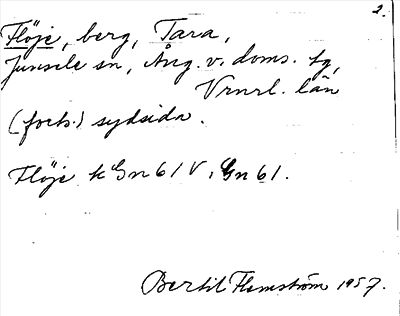 2.
Flöje, berg, Tara,
Junsele sn, Ång. v. doms. tg,
Vrnrl. län
(forts.) sydsida.
Flöje k Gn 61 V, Gn 61.
Bertil Flemström 1957.